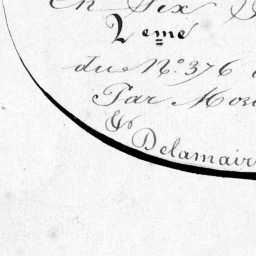 En Six
2eme
du No. 376
Par Mo
Delamair